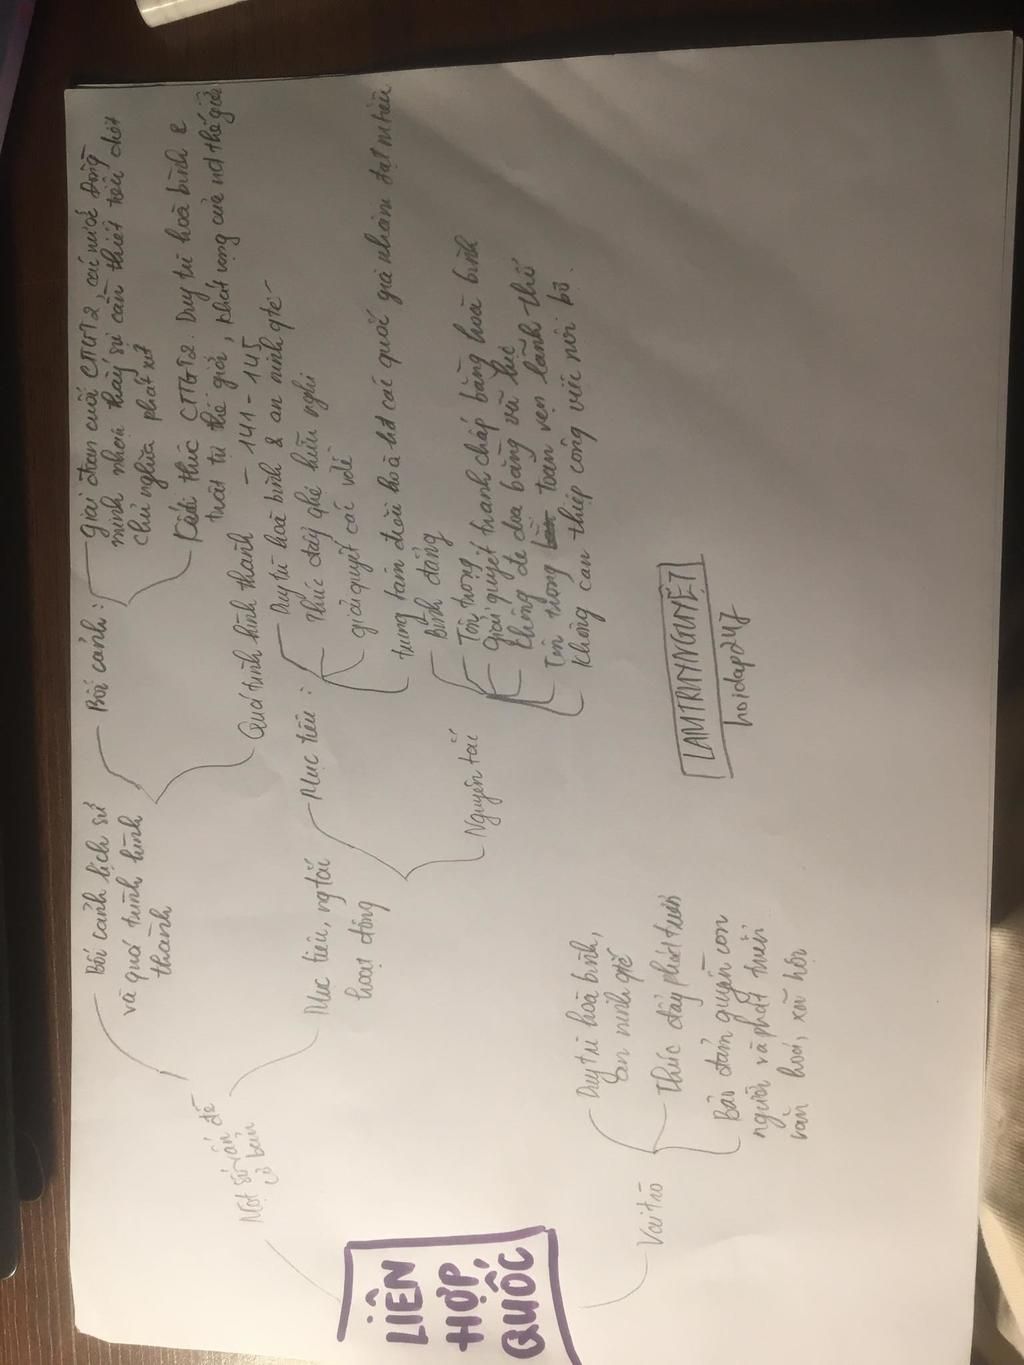 LIÊN
HỢP
QUỐC
Một số vấn đề
cơ bản
Bối cảnh lịch sử
và quá trình hình
thành
Bối cảnh:
giai đoạn cuối CTTG T2, các nước Đồng
minh nhận thấy sự cần thiết tiêu diệt
chủ nghĩa phát xít
Kết thúc CTTGT2. Duy trì hoà bình &
trật tự thế giới, khát vọng của nd thế giới
Quá trình hình thành - 1/1 - 145
Mục tiêu, ng tắc
hoạt động
Mục tiêu:
Duy trì hoà bình & an ninh qtế
Thúc đẩy qhệ hữu nghị
giải quyết các vđề
trung tâm điều hoà hđ các quốc gia nhằm đạt mtiêu
Nguyên tắc
Bình đẳng
Tôn trọng
Giải quyết tranh chấp bằng hoà bình
Không đe doạ bằng vũ lực
Tôn trọng toàn vẹn lãnh thổ
Không can thiệp công việc nội bộ.
Vai trò
Duy trì hoà bình,
an ninh qtế
Thúc đẩy phát triển
Bảo đảm quyền con
người và phát triển
văn hoá, xã hội
LAMTRUYNGUYỆT
hoidap247